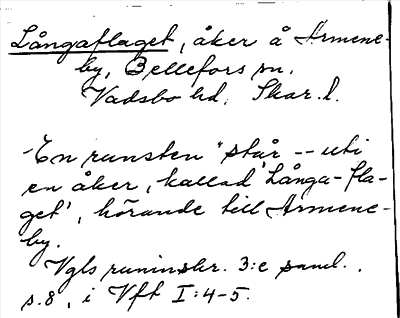 Långaflaget, åker å Armene-
by, Bellefors sn.
Vadsbo hd. Skar. l.
En runsten "står -- uti
en åker, kallad 'Långa-fla-
get', hörande till Armene-
by.
Vgls runinskr. 3:e saml.,
s.8, i Vft I:4-5.